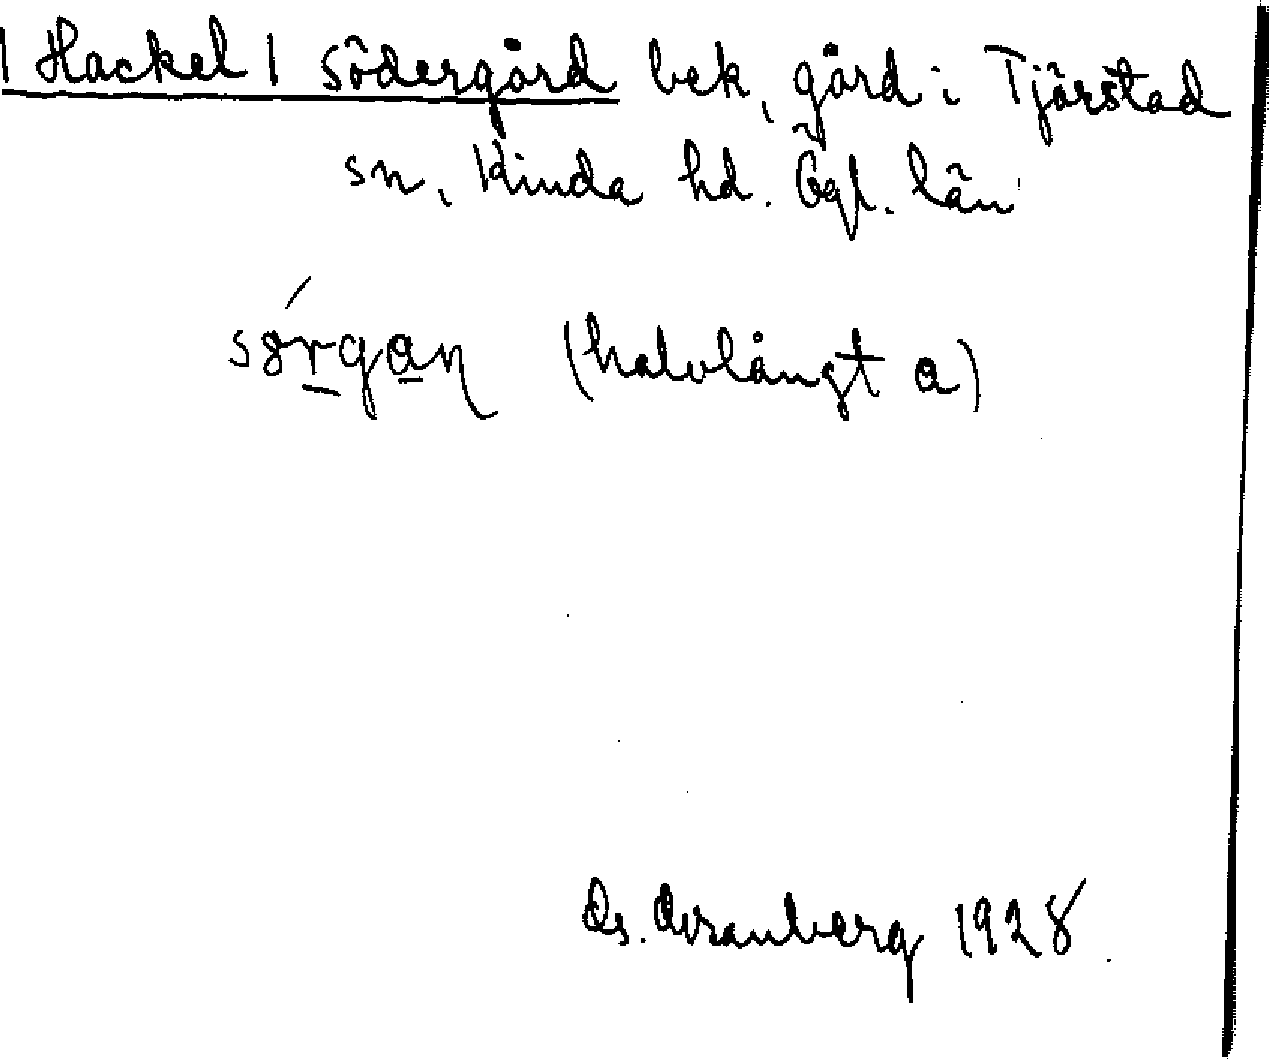 | Hackel | Södergård bek, gård i Tjärstad
sn, Kinda hd. Ögl. län
sörgan (halvlångt a)
1928